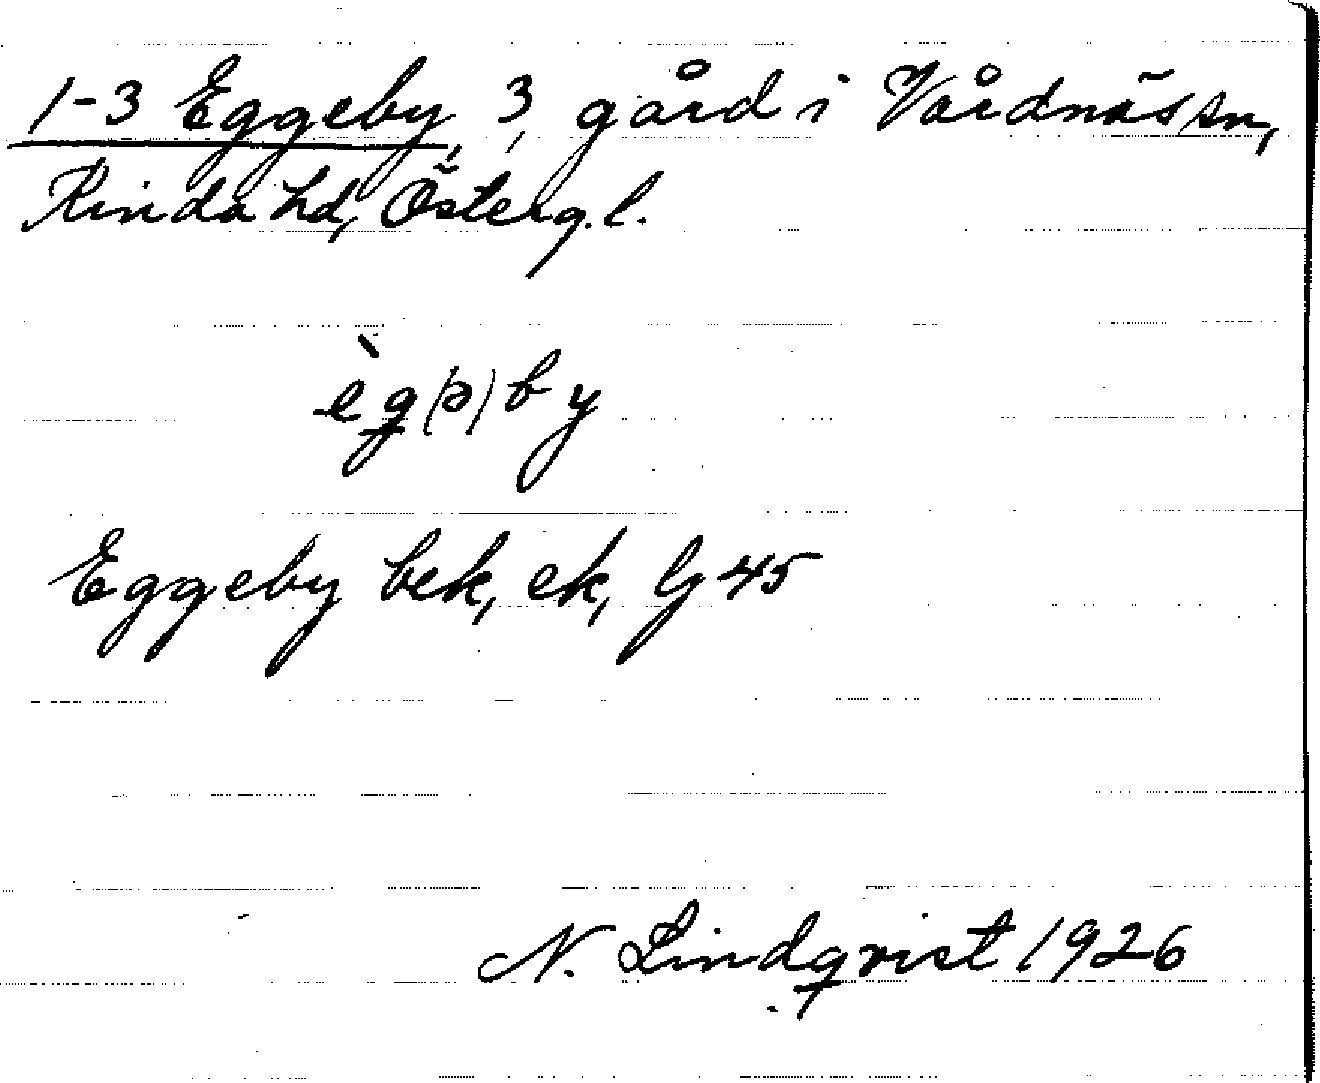 1-3 Eggeby, 3, gård i Vårdnäs sn,
Kinda hd, Österg. l.
èg(ə)by
Eggeby bek, ek, G 45
N. Lindqvist 1926